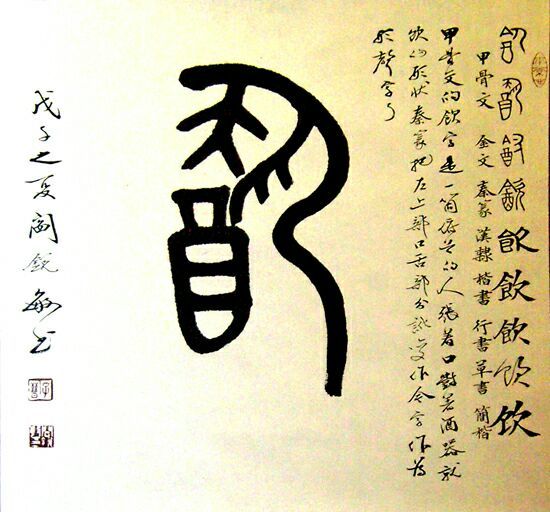 飲飲飲飲飲飲飲饮饮
甲骨文 金文 秦篆 漢隸 楷書 行書 草書 簡楷
甲骨文的飲字是一個俯首的人張着口對着酒器就
飲的形狀秦篆把左上部口舌部分訛變作今字作為
形聲字了
飲
戊子之夏閻銳敏书